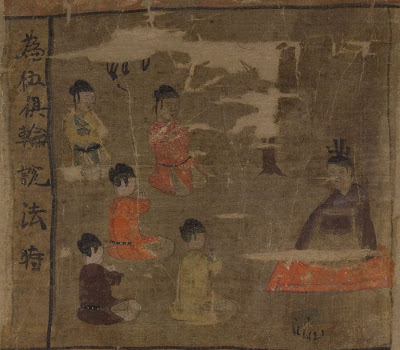 為伍俱輪說法時